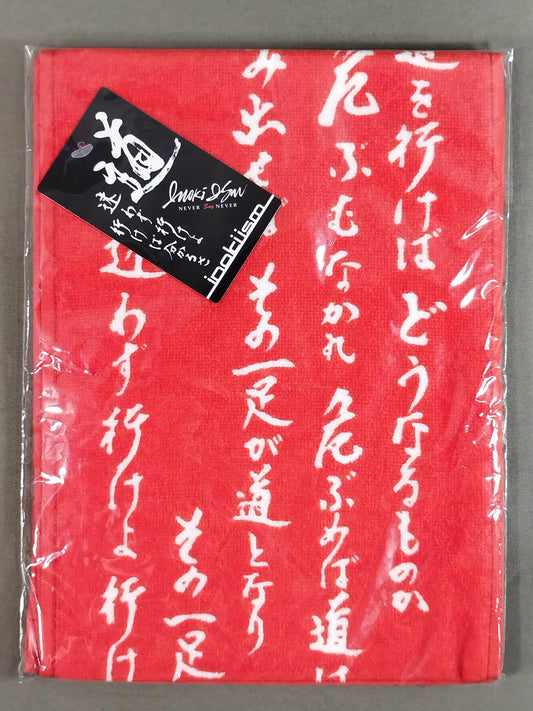 道を行けば どうなるものか
危ぶむなかれ 危ぶめば道は
み出せば その一足が道となり
その一足
迷わず行けよ 行け
道
Inoki Ism
NEVER Say NEVER
迷わず行けよ
行けば分かるさ
inokiism